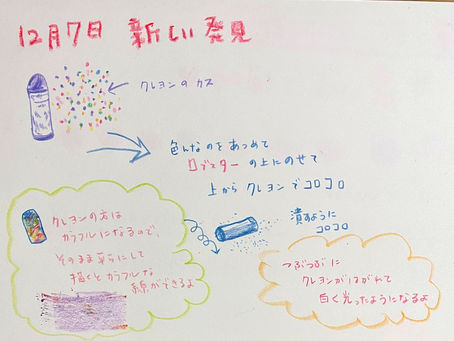 12月7日 新しい発見
クレヨンのカス
色んなのをあつめて
ロブスターの上にのせて
上からクレヨンでコロコロ
クレヨンの方は
カラフルになるので、
そのまま平らにして
描くとカラフルな
線ができるよ
潰すように
コロコロ
つぶつぶに
クレヨンがはがれて
白く光ったようになるよ